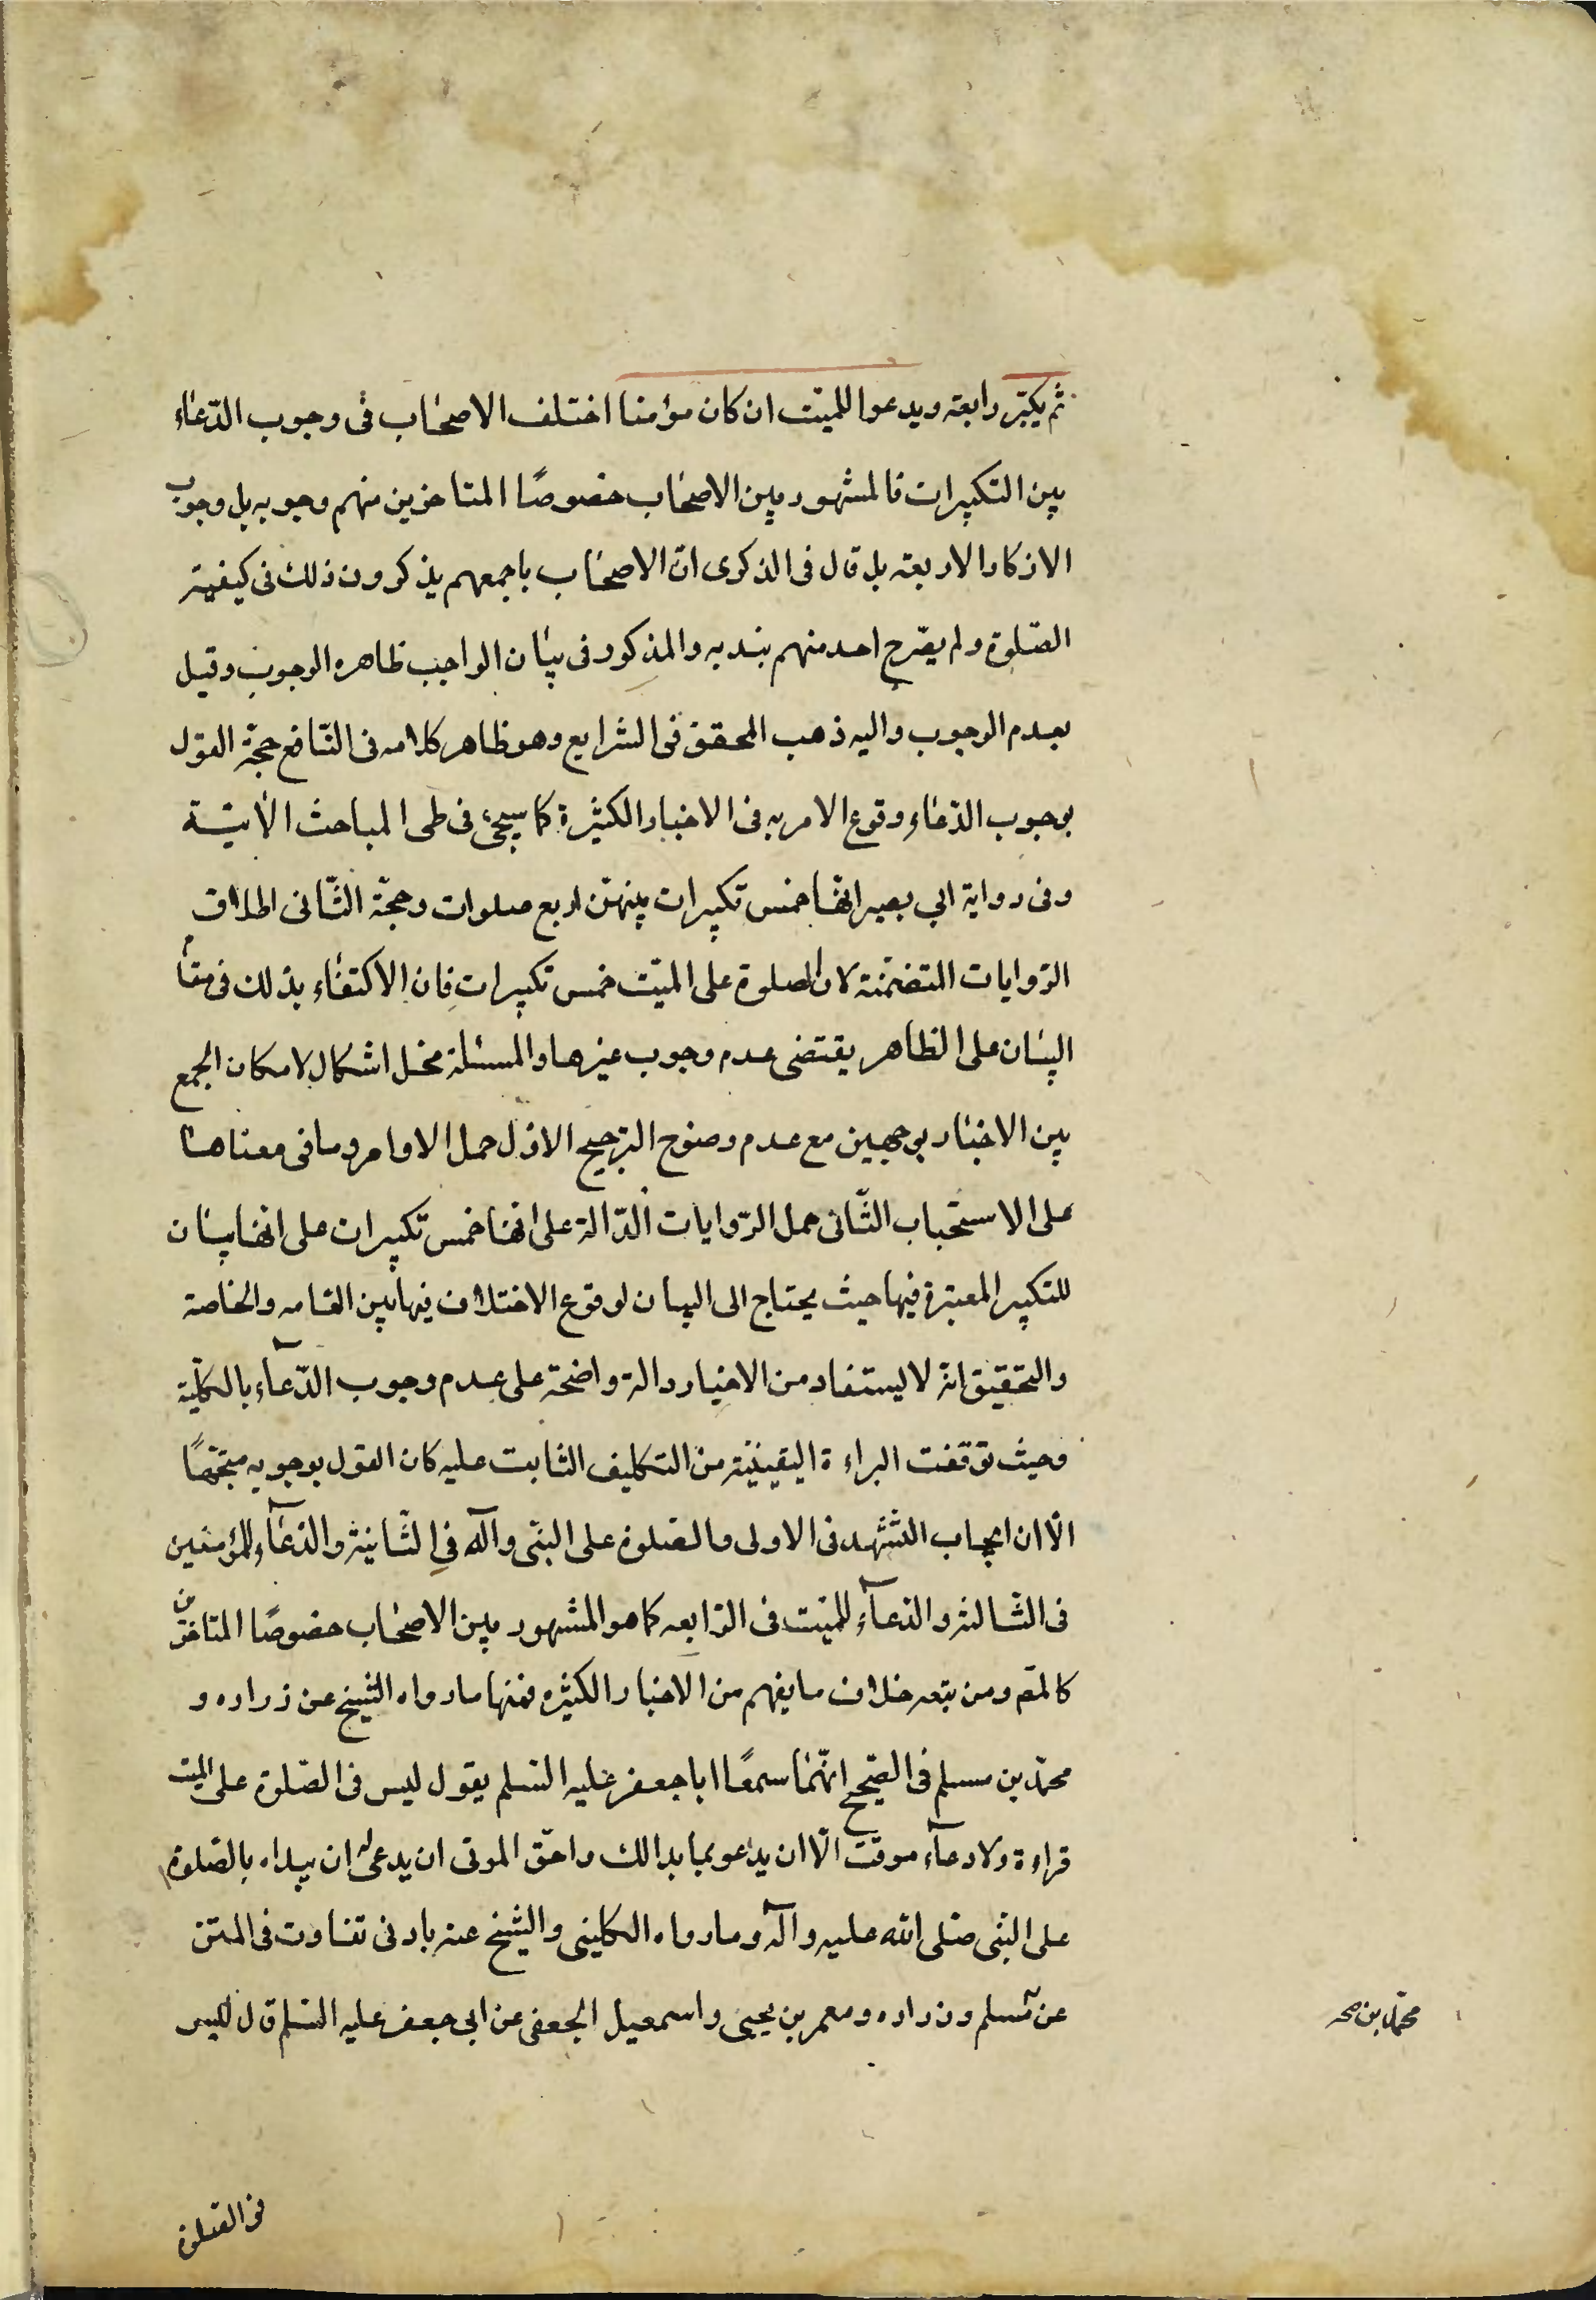 ثم يكبّر رابعة ويدعوا للميّت ان كان مؤمنا اختلف الاصحاب فى وجوب الدّعاء
بين التكبيرات فالمشهور بين الاصحاب خصوصًا المتاخرين منهم وجوبه بل وجوب
الاذكار الاربعة بل قال فى الذكرى انّ الاصحاب باجمعهم يذكرون ذلك فى كيفية
الصّلوة ولم يصّرح احد منهم بندبه والمذكور فى بيان الواجب ظاهره الوجوب وقيل
بعدم الوجوب واليه ذهب المحقق فى الشرايع وهو ظاهر كلامه فى النّافع حجّة القول
بوجوب الدّعاء وقوع الامر به فى الاخبار الكثيرة كما سيجئ فى طى المباحث الآتيّة
وفى رواية ابي بصير انّها خمس تكبيرات بينهنّ اربع صلوات وحجّة الثّانى اطلاق
الرّوايات المتضمّنة لان الصلوة على الميّت خمس تكبيرات فان الاكتفاء بذلك فى مقام
البيان على الظاهر يقتضى عدم وجوب غيرها والمسئلة محل اشكال لامكان الجمع
بين الاخبار بوجهين مع عدم وضوح الترجيح الاوّل حمل الاوامر وما فى معناها
على الاستحباب الثّانى حمل الرّوايات الدّالة على انّها خمس تكبيرات على انّها بيان
للتكبير المعتبرة فيها حيث يحتاج الى البيان لوقوع الاختلاف فيها بين العامه والخاصة
والتحقيق انّه لا يستفاد من الاخبار دالة واضحة على عدم وجوب الدّعآء بالكليّة
وحيث توقّفت البراءة اليقينيّة من التكليف الثابت عليه كان القول بوجوبه متجّهًا
الّا ان ايجاب التشّهد فى الاولى والصّلوة على النبّى وآله فى الثّانية والدّعآء للمؤمنين
فى الثّالثة والدّعآء للميّت فى الرّابعه كما هو المشهور بين الاصحاب خصوصًا المتاخرّين
كالمصّ ومن تبعه خلاف ما يفهم من الاخبار الكثيره فمنها ما رواه الشيخ عن زراره و
محمّد بن مسلم فى الصّحيح انّهما سمعًا ابا جعفر عليه السّلم يقول ليس فى الصّلوة على الميّت
قراءة ولا دعآء موقّت الّا ان يدعو بما بدالك واحّق الموتى ان يدعى له ان يبداء بالصّلوة
على النبّى صّلى الله عليه وآله وما رواه الكلينى والشيخ عنه بادنى تفاوت فى المتن
عن مسلم وزراره ومعمر بن يحيى واسمعيل الجعفى عن ابى جعفر عليه السّلم قال ليس
محمّد بن صحـ
فى الصّلوة